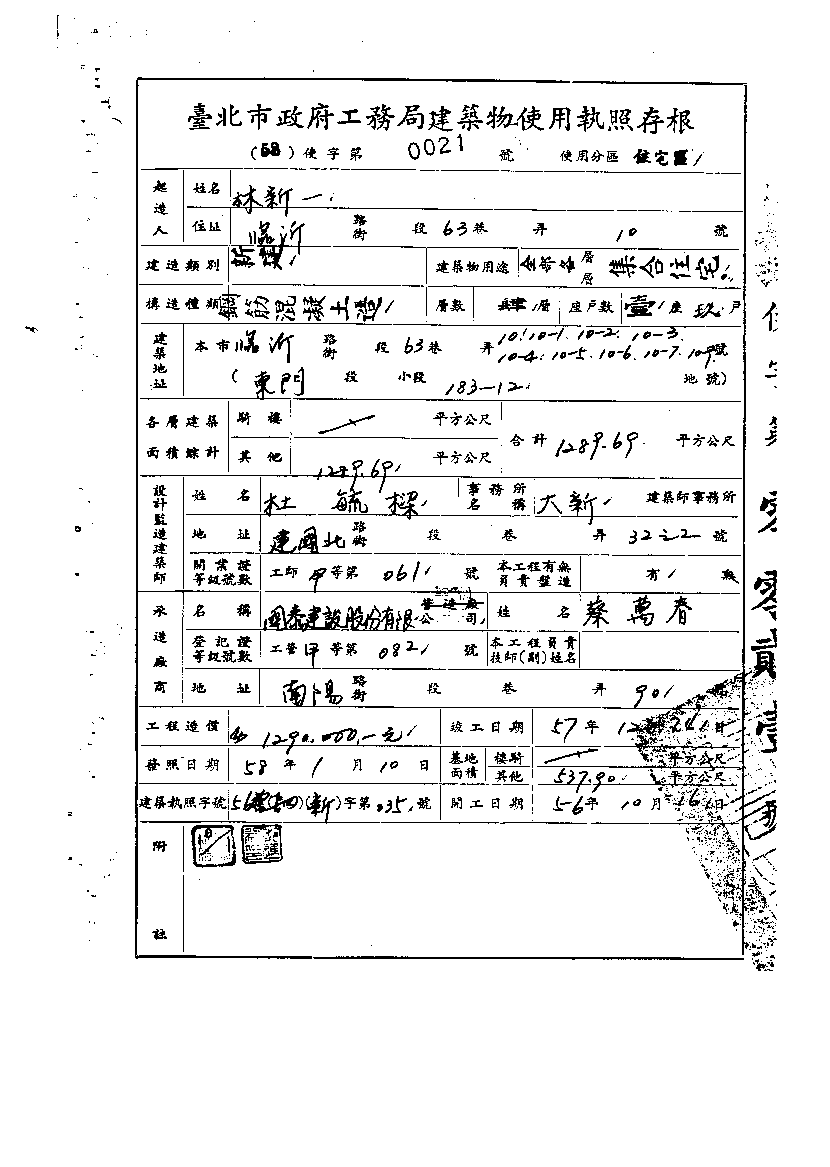 臺北市政府工務局建築物使用執照存根
(58)使字第 0021 號 使用分區 住宅區
起造人 姓名 林新一
住址 臨沂 路街 段 63巷 弄 10 號
建造類別 新建 建築物用途 全部各層層 集合住宅
構造種類 鋼筋混凝土造 層數 肆層 座戶數 壹座 玖戶
建築地址 本市 臨沂 路街 段 63巷 弄 10.10-1.10-2.10-3.
10-4.10-5.10-6.10-7.10-9號
(東門 段 小段 183-12 地號)
各層建築面積總計 騎樓 平方公尺 合計 1289.69 平方公尺
其他 1289.69 平方公尺
設計監造建築師 姓名 杜毓樑 事務所名稱 大新 建築師事務所
地址 建國北 路街 段 巷 弄 32之2 號
開業證等級號數 工師甲等第 061 號 本工程有無負責監造 有 無
承造廠商 名稱 國泰建設股份有限公司 營造廠 姓名 蔡萬春
登記證等級號數 工營甲等第 082 號 本工程負責技師(副)姓名
地址 南陽 路街 段 巷 弄 90 號
工程造價 1290,000.-元 竣工日期 57年 12月 24日
發照日期 58年 1月 10日 基地面積 樓騎 平方公尺
其他 537.90 平方公尺
建築執照字號 56 (新)字第 035 號 開工日期 56年 10月 16日
附註
使字第零零貳壹